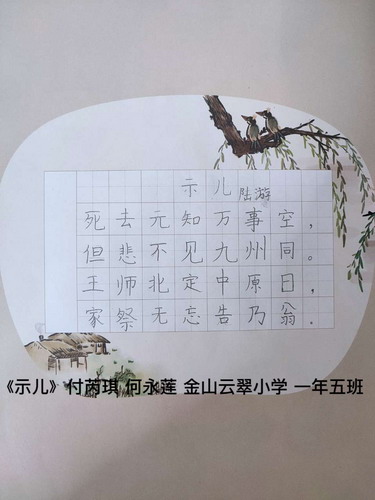 示儿
陆游
死去元知万事空，
但悲不见九州同。
王师北定中原日，
家祭无忘告乃翁.
《示儿》付芮琪 何永莲 金山云翠小学 一年五班